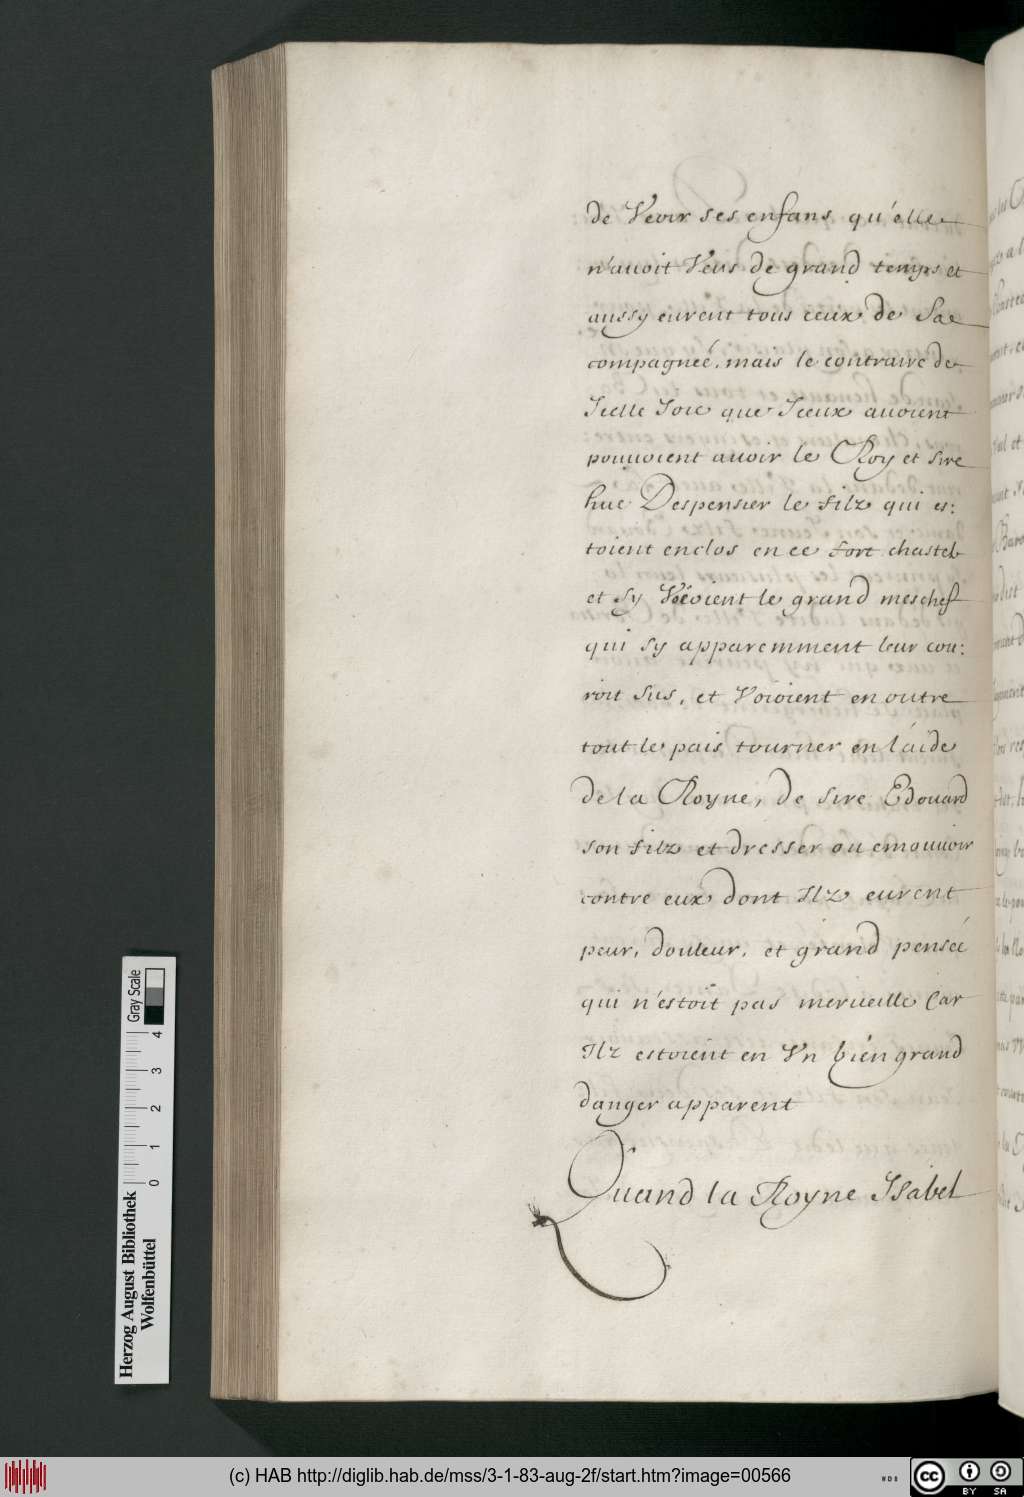 de Veoir ses enfans qu'elle
n'auoit Veus de grand temps et
aussy eurent tous ceux de Sa
compagneé, mais le contraire de
Icelle Ioie que Iceux auoient
pouuoient auoir le Roy et sire
hue Despensier le filz qui es:
toient enclos en ce fort chastel
et sy Véoient le grand meschef
qui sy apparemment leur cou:
roit sus, et Voioient en outre
tout le pais tourner en l'aide
de la Royne, de sire Edouard
son filz et dresser ou emouuoir
contre eux dont Ilz eurent
peur, douleur, et grand penseé
qui n'estoit pas merueille Car
Ilz estoient en Vn bién grand
danger apparent
Quand la Royne Isabel
Herzog August Bibliothek
Wolfenbüttel
0 1 2 3 4
Gray Scale
(c) HAB http://diglib.hab.de/mss/3-1-83-aug-2f/start.htm?image=00566
WDB
cc BY SA